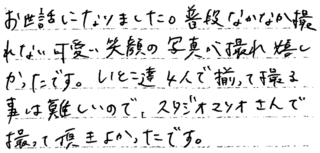 お世話になりました。普段なかなか撮
れない可愛い笑顔の写真が撮れ嬉し
かったです。いとこ達4人で揃って撮る
事は難しいので、スタジオマリオさんで
撮って頂きよかったです。